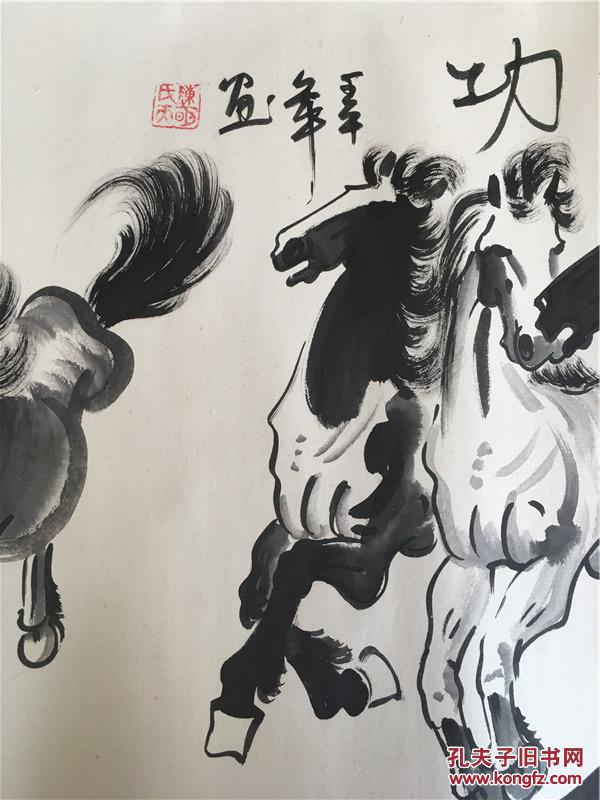 功
年画
孔夫子旧书网
www.kongfz.com